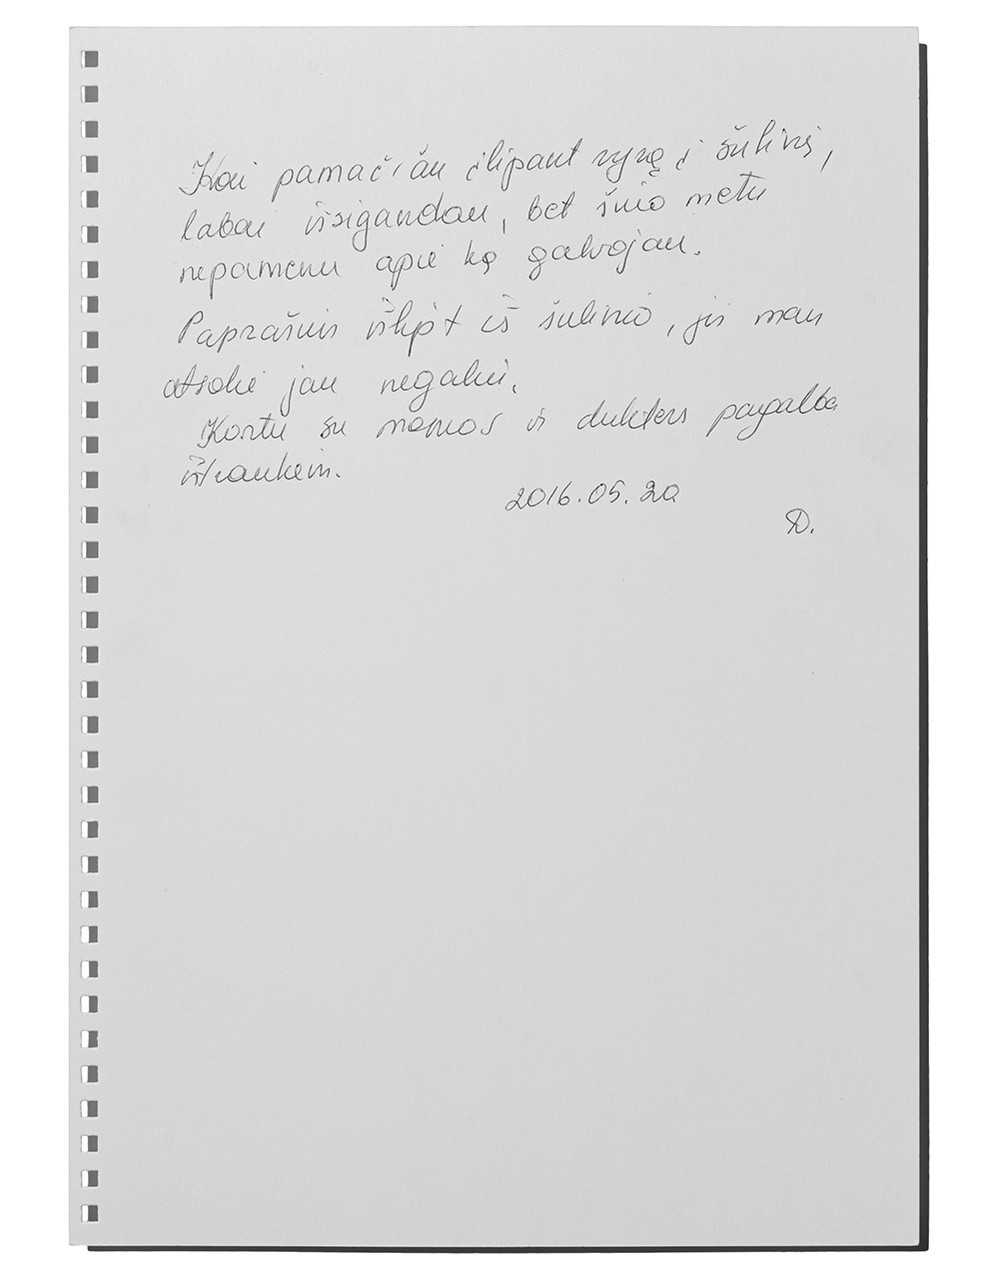 Kai pamačiau įlipant vyrą į šulinį,
labai išsigandau, bet šiuo metu
nepamenu apie ką galvojau.
Paprašius išlipt iš šulinio, jis man
atsakė jau negaliu.
Kartu su mamos ir dukters pagalba
ištraukėm.
2016.05.20
D.